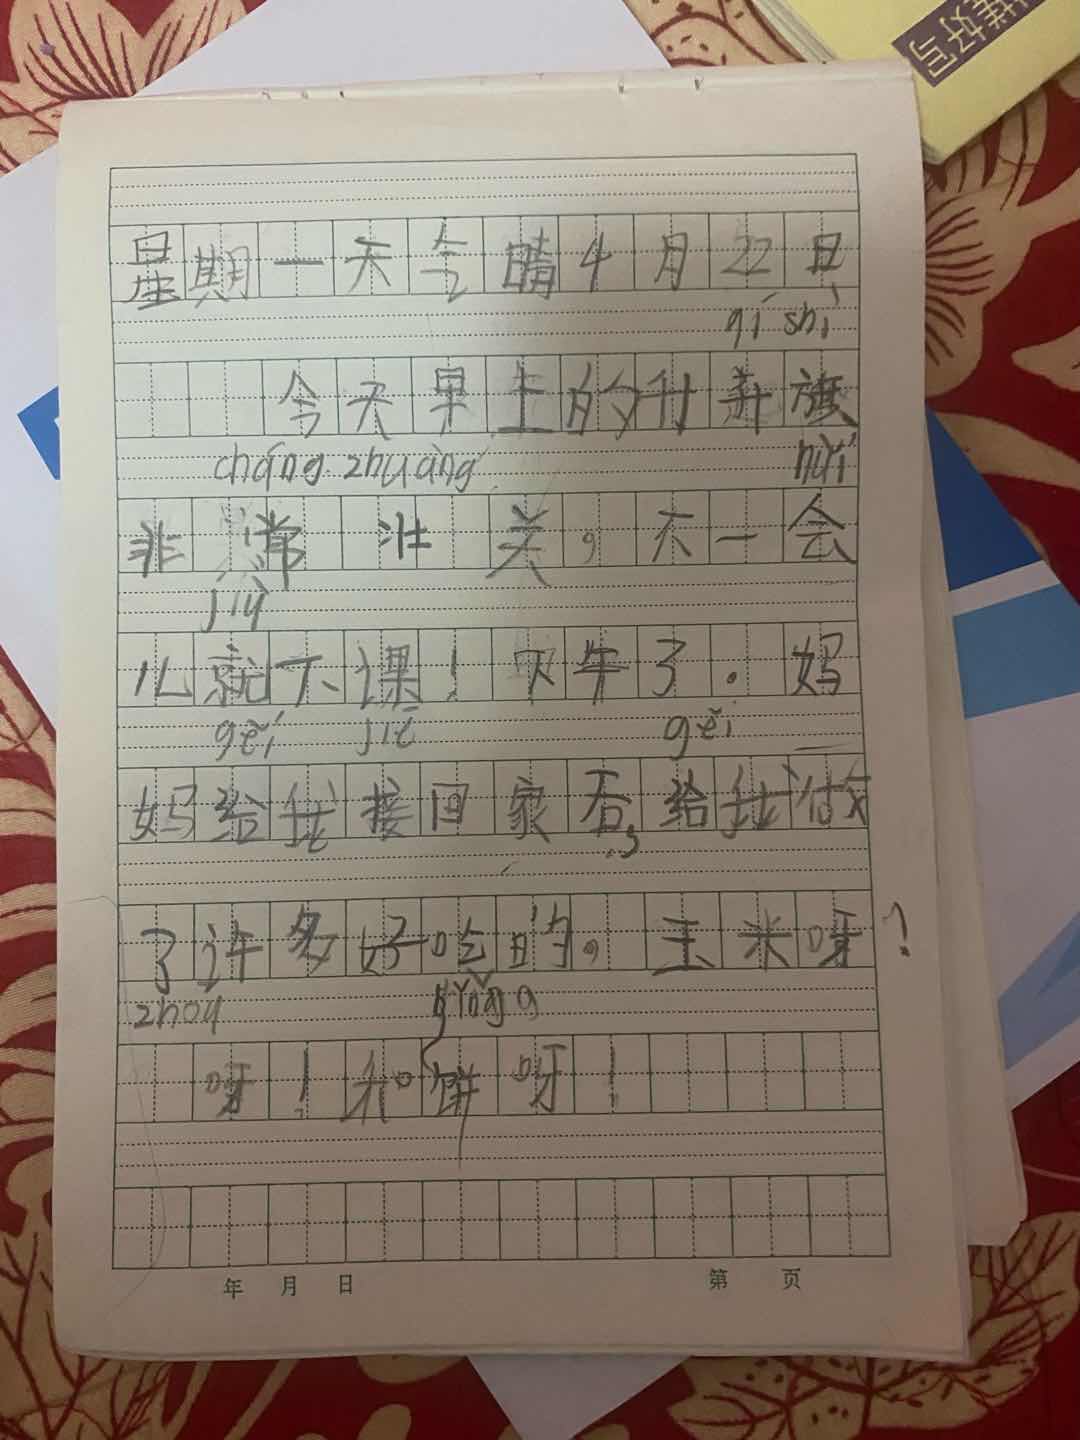 推好写
星期一天气晴4月22日
qí shì
今天早上的升升旗
cháng zhuàng huì
非常壮美,不一会
jiù
儿就下课!下午了.妈
gěi jiē gěi
妈给我接回家后,给我做
了许多好吃的。玉米呀!
zhou bǐng
呀!和饼呀!
年 月 日 第 页